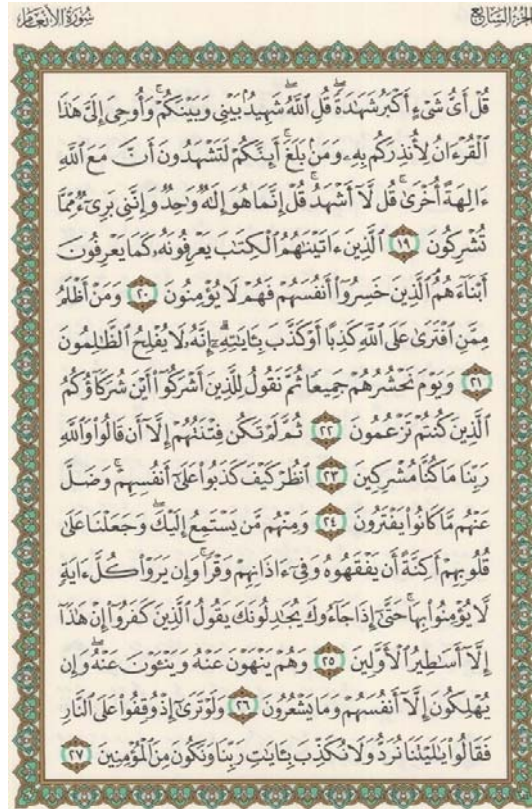 الجزء السابع
سورة الأنعام
قُلْ أَىُّ شَىْءٍ أَكْبَرُ شَهَـٰدَةً ۖ قُلِ ٱللَّهُ ۖ شَهِيدٌۢ بَيْنِى وَبَيْنَكُمْ ۚ وَأُوحِىَ إِلَىَّ هَـٰذَا
ٱلْقُرْءَانُ لِأُنذِرَكُم بِهِۦ وَمَنۢ بَلَغَ ۚ أَئِنَّكُمْ لَتَشْهَدُونَ أَنَّ مَعَ ٱللَّهِ
ءَالِهَةً أُخْرَىٰ ۚ قُل لَّآ أَشْهَدُ ۚ قُلْ إِنَّمَا هُوَ إِلَـٰهٌ وَٰحِدٌ وَإِنَّنِى بَرِىٓءٌ مِّمَّا
تُشْرِكُونَ ١٩ ٱلَّذِينَ ءَاتَيْنَـٰهُمُ ٱلْكِتَـٰبَ يَعْرِفُونَهُۥ كَمَا يَعْرِفُونَ
أَبْنَآءَهُمُ ٱلَّذِينَ خَسِرُوٓا۟ أَنفُسَهُمْ فَهُمْ لَا يُؤْمِنُونَ ٢٠ وَمَنْ أَظْلَمُ
مِمَّنِ ٱفْتَرَىٰ عَلَى ٱللَّهِ كَذِبًا أَوْ كَذَّبَ بِـَٔايَـٰتِهِۦٓ ۗ إِنَّهُۥ لَا يُفْلِحُ ٱلظَّـٰلِمُونَ
٢١ وَيَوْمَ نَحْشُرُهُمْ جَمِيعًا ثُمَّ نَقُولُ لِلَّذِينَ أَشْرَكُوٓا۟ أَيْنَ شُرَكَآؤُكُمُ
ٱلَّذِينَ كُنتُمْ تَزْعُمُونَ ٢٢ ثُمَّ لَمْ تَكُن فِتْنَتُهُمْ إِلَّآ أَن قَالُوا۟ وَٱللَّهِ
رَبِّنَا مَا كُنَّا مُشْرِكِينَ ٢٣ ٱنظُرْ كَيْفَ كَذَبُوا۟ عَلَىٰٓ أَنفُسِهِمْ ۚ وَضَلَّ
عَنْهُم مَّا كَانُوا۟ يَفْتَرُونَ ٢٤ وَمِنْهُم مَّن يَسْتَمِعُ إِلَيْكَ ۖ وَجَعَلْنَا عَلَىٰ
قُلُوبِهِمْ أَكِنَّةً أَن يَفْقَهُوهُ وَفِىٓ ءَاذَانِهِمْ وَقْرًا ۚ وَإِن يَرَوْا۟ كُلَّ ءَايَةٍ
لَّا يُؤْمِنُوا۟ بِهَا ۚ حَتَّىٰٓ إِذَا جَآءُوكَ يُجَـٰدِلُونَكَ يَقُولُ ٱلَّذِينَ كَفَرُوٓا۟ إِنْ هَـٰذَآ
إِلَّآ أَسَـٰطِيرُ ٱلْأَوَّلِينَ ٢٥ وَهُمْ يَنْهَوْنَ عَنْهُ وَيَنْـَٔوْنَ عَنْهُ ۖ وَإِن
يُهْلِكُونَ إِلَّآ أَنفُسَهُمْ وَمَا يَشْعُرُونَ ٢٦ وَلَوْ تَرَىٰٓ إِذْ وُقِفُوا۟ عَلَى ٱلنَّارِ
فَقَالُوا۟ يَـٰلَيْتَنَا نُرَدُّ وَلَا نُكَذِّبَ بِـَٔايَـٰتِ رَبِّنَا وَنَكُونَ مِنَ ٱلْمُؤْمِنِينَ ٢٧